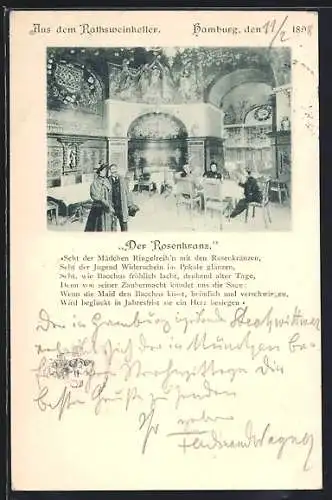 Aus dem Rathsweinkeller. Hamburg, den 11/2 1898
„Der Rosenkranz."
»Seht der Mädchen Ringelreih'n mit den Rosenkränzen,
Seht der Jugend Widerschein im Pokale glänzen,
Seht, wie Bacchus fröhlich lacht, denkend alter Tage,
Denn von seiner Zaubermacht kündet uns die Sage:
Wenn die Maid den Bacchus küsst, heimlich und verschwiegen,
Wird beglückt in Jahresfrist sie ein Herz besiegen.«
Der in Hamburg
sich der in München
die
beste Grüße zu senden
Ihr
Ferdinand Wagner